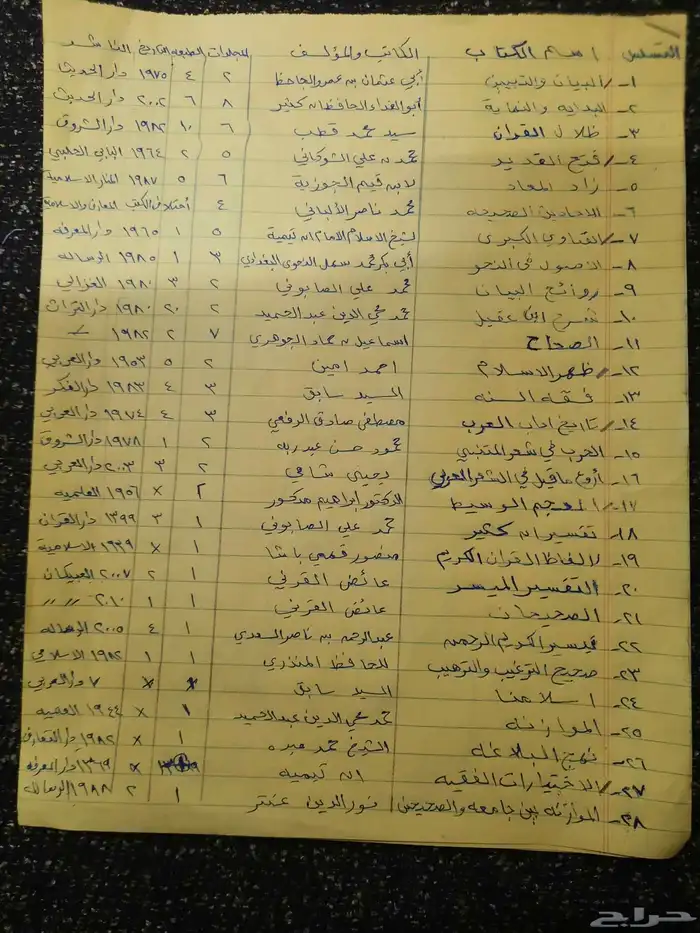 التسلسل اسم الكتاب الكاتب والمؤلف المجلدات الطبعه التاريخ الناشر
١- البيان والتبيين أبي عثمان بن عمرو الجاحظ ٢ ٤ ١٩٧٥ دار الحديث
٢- البدايه والنهاية أبو الفداء الحافظ ابن كثير ٨ ٦ ٢٠٠٢ دار الحديث
٣- ظلال القران سيد محمد قطب ٦ ١٠ ١٩٨٢ دار الشروق
٤- فتح القدير محمد بن علي الشوكاني ٥ ٢ ١٩٦٤ البابي الحلبي
٥- زاد المعاد لابن قيم الجوزية ٦ ٥ ١٩٨٧ المنار الاسلامية
٦- الاحاديث الصحيحه محمد ناصر الألباني ٤ أختلاف الكتب المعارف والاسلامية
٧- الفتاوي الكبرى لشيخ الاسلام الامام ابن تيمية ٥ ١ ١٩٦٥ دار المعرفه
٨- الاصول في النحو أبي بكر محمد سهل النحوي البغدادي ٣ ١ ١٩٨٥ الرساله
٩- روائع البيان محمد علي الصابوني ٢ ٣ ١٩٨٠ الغزالي
١٠- شرح ابن عقيل محمد محي الدين عبد الحميد ٢ ٢٠ ١٩٨٠ دار التراث
١١- الصحاح اسماعيل بن حماد الجوهري ٧ ٢ ١٩٨٢
١٢- ظهر الاسلام احمد امين ٢ ٥ ١٩٥٣ دار العربي
١٣- فقه السنه السيد سابق ٣ ٤ ١٩٨٣ دار الفكر
١٤- تاريخ اداب العرب مصطفى صادق الرفعي ٣ ٤ ١٩٧٤ دار العربي
١٥- الحرب في شعر المتنبي محمود حسن عبد ربه ٢ ١ ١٩٧٨ دار الشروق
١٦- أروع ماقيل في الشعر العربي يحيى شامي ٢ ٣ ٢٠٠٣ دار العربي
١٧- المعجم الوسيط الدكتور ابراهيم مدكور ٢ × ١٩٥٦ العلميه
١٨- تفسير ابن كثير محمد علي الصابوني ١ ٣ ١٣٩٩ دار القران
١٩- لالفاظ القران الكريم منصور فهمي باشا ١ × ١٩٣٩ الاسلامية
٢٠- التفسير الميسر عائض القرني ١ ٢ ٢٠٠٧ العبيكان
٢١- الصحيحان عائض القرني ١ ١ ٢٠١٠ // //
٢٢- الكريم الرحمن عبد الرحمن بن ناصر السعدي ١ ٤ ٢٠٠٥ الرساله
٢٣- صحيح الترغيب والترهيب للحافظ المنذري ١ ١ ١٩٨٢ الاسلامي
٢٤- اسلامنا السيد سابق × × ٧ دار العربي
٢٥- الموازنه محمد محي الدين عبد الحميد ١ × ١٩٤٤
٢٦- نهج البلاغه الشيخ محمد عبده ١ × ١٩٨٢ دار
٢٧- الاختيارات الفقيه ابن تيميه × ١٣٦٩ دار المعرفه
٢٨- الموازنه بين جامعه والصحيحين نور الدين عنتر ١ ٢ ١٩٨٨ الرساله
حراج